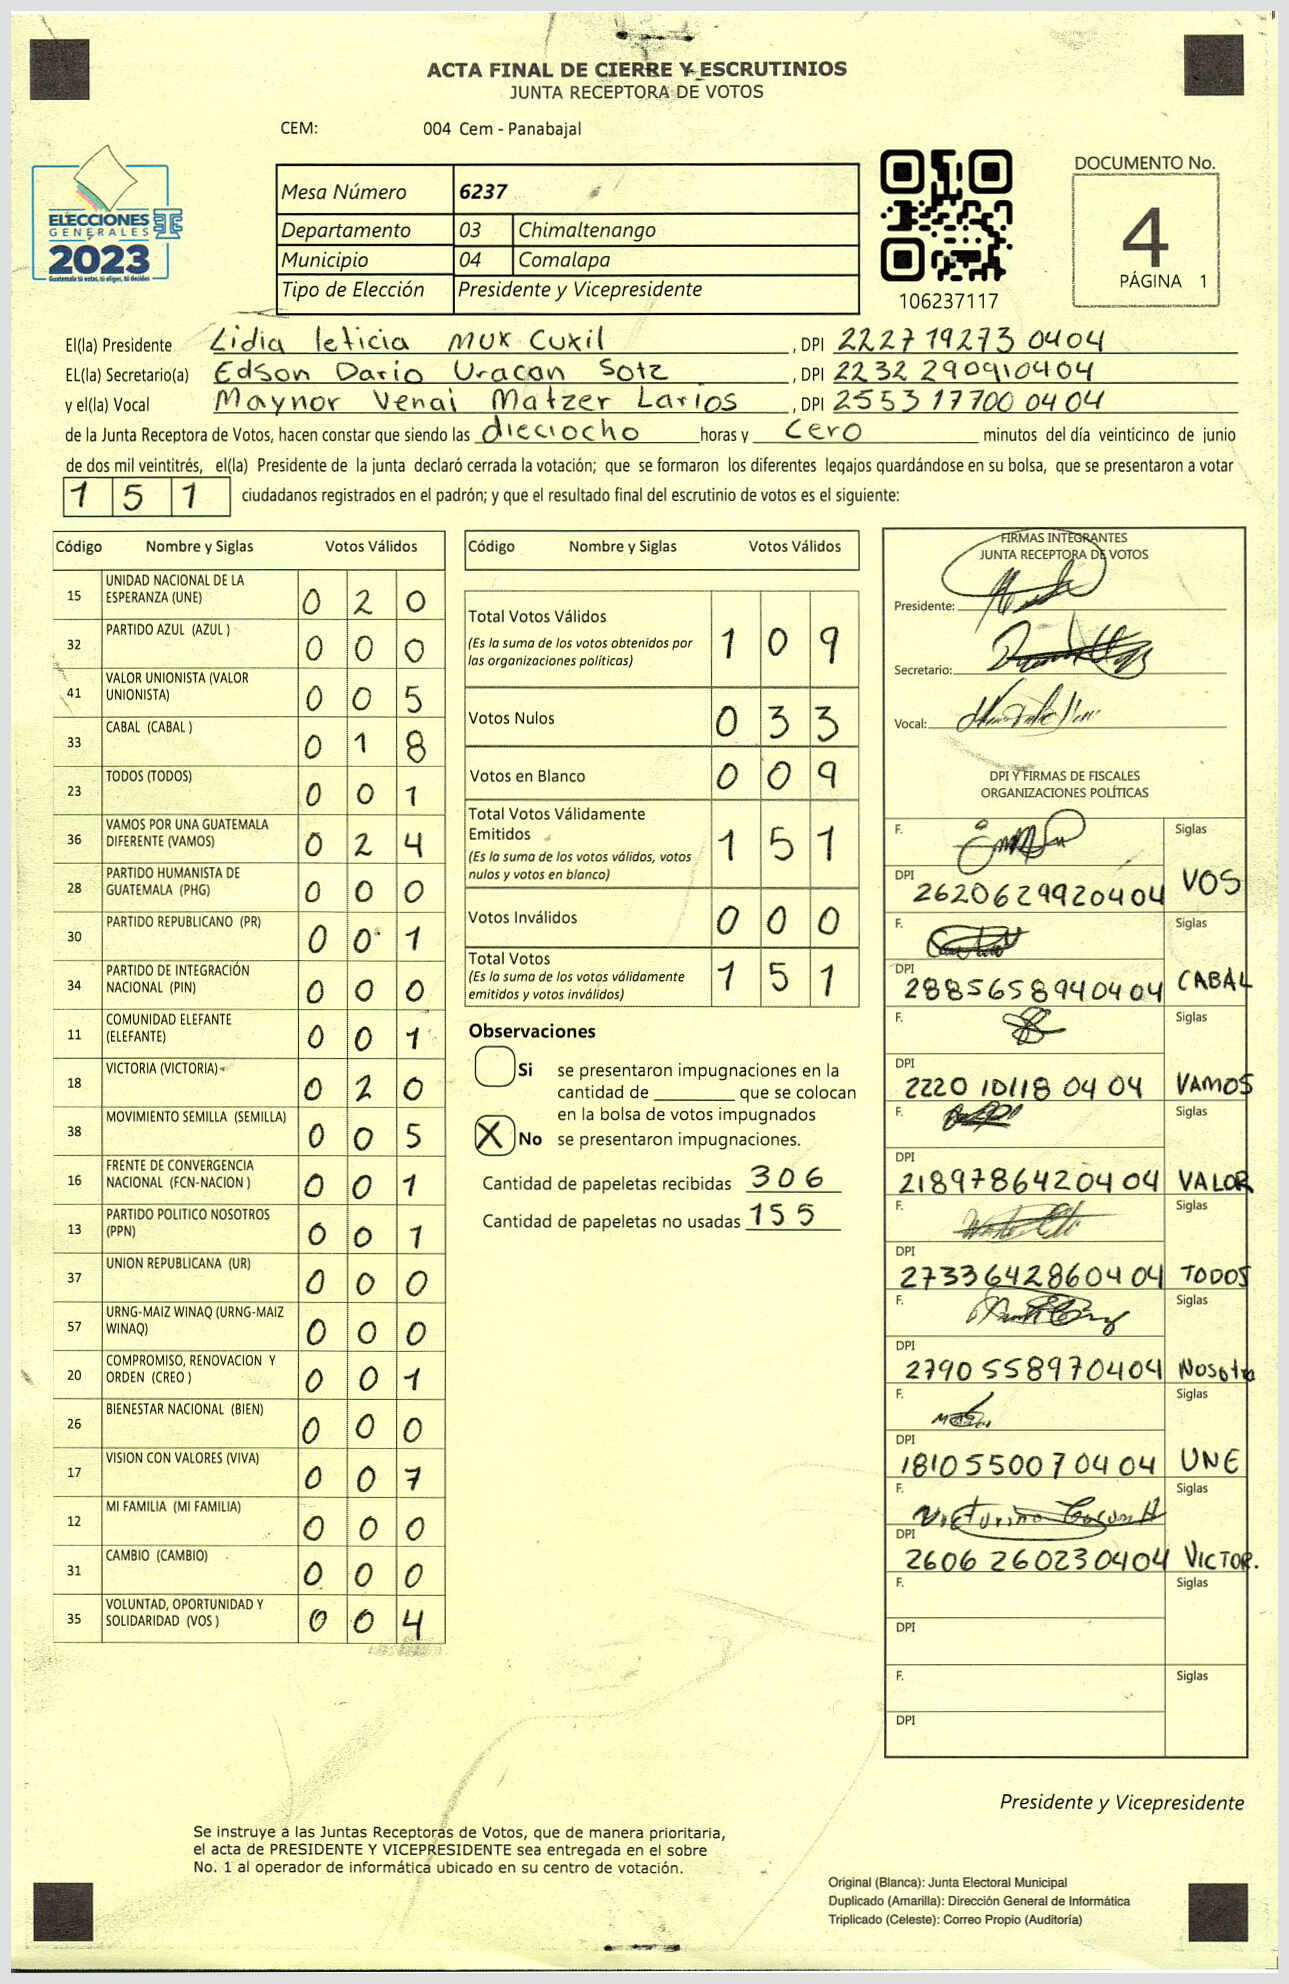 ACTA FINAL DE CIERRE Y ESCRUTINIOS
JUNTA RECEPTORA DE VOTOS
CEM: 004 Cem - Panabajal
ELECCIONES
GENERALES
2023
Guatemala tú votas, tú eliges, tú decides
Mesa Número 6237
Departamento 03 Chimaltenango
Municipio 04 Comalapa
Tipo de Elección Presidente y Vicepresidente
106237117
DOCUMENTO No.
4
PÁGINA 1
El(la) Presidente Lidia leticia Mux Cuxil , DPI 2227 19273 0404
EL(la) Secretario(a) Edson Dario Uracan Sotz , DPI 2232 290910404
y el(la) Vocal Maynor Venai Matzer Larios , DPI 2553 17700 0404
de la Junta Receptora de Votos, hacen constar que siendo las dieciocho horas y cero minutos del día veinticinco de junio
de dos mil veintitrés, el(la) Presidente de la junta declaró cerrada la votación; que se formaron los diferentes legajos guardándose en su bolsa, que se presentaron a votar
1 5 1 ciudadanos registrados en el padrón; y que el resultado final del escrutinio de votos es el siguiente:
Código Nombre y Siglas Votos Válidos
15 UNIDAD NACIONAL DE LA
ESPERANZA (UNE) 0 2 0
32 PARTIDO AZUL (AZUL ) 0 0 0
41 VALOR UNIONISTA (VALOR
UNIONISTA) 0 0 5
33 CABAL (CABAL ) 0 1 8
23 TODOS (TODOS) 0 0 1
36 VAMOS POR UNA GUATEMALA
DIFERENTE (VAMOS) 0 2 4
28 PARTIDO HUMANISTA DE
GUATEMALA (PHG) 0 0 0
30 PARTIDO REPUBLICANO (PR) 0 0 1
34 PARTIDO DE INTEGRACIÓN
NACIONAL (PIN) 0 0 0
11 COMUNIDAD ELEFANTE
(ELEFANTE) 0 0 1
18 VICTORIA (VICTORIA) 0 2 0
38 MOVIMIENTO SEMILLA (SEMILLA) 0 0 5
16 FRENTE DE CONVERGENCIA
NACIONAL (FCN-NACION ) 0 0 1
13 PARTIDO POLITICO NOSOTROS
(PPN) 0 0 1
37 UNION REPUBLICANA (UR) 0 0 0
57 URNG-MAIZ WINAQ (URNG-MAIZ
WINAQ) 0 0 0
20 COMPROMISO, RENOVACION Y
ORDEN (CREO ) 0 0 1
26 BIENESTAR NACIONAL (BIEN) 0 0 0
17 VISION CON VALORES (VIVA) 0 0 7
12 MI FAMILIA (MI FAMILIA) 0 0 0
31 CAMBIO (CAMBIO) 0 0 0
35 VOLUNTAD, OPORTUNIDAD Y
SOLIDARIDAD (VOS ) 0 0 4
Código Nombre y Siglas Votos Válidos
Total Votos Válidos
(Es la suma de los votos obtenidos por
las organizaciones políticas) 1 0 9
Votos Nulos 0 3 3
Votos en Blanco 0 0 9
Total Votos Válidamente
Emitidos
(Es la suma de los votos válidos, votos
nulos y votos en blanco) 1 5 1
Votos Inválidos 0 0 0
Total Votos
(Es la suma de los votos válidamente
emitidos y votos inválidos) 1 5 1
Observaciones
Si se presentaron impugnaciones en la
cantidad de ________ que se colocan
en la bolsa de votos impugnados
X No se presentaron impugnaciones.
Cantidad de papeletas recibidas 306
Cantidad de papeletas no usadas 155
FIRMAS INTEGRANTES
JUNTA RECEPTORA DE VOTOS
Presidente:
Secretario:
Vocal:
DPI Y FIRMAS DE FISCALES
ORGANIZACIONES POLÍTICAS
F. Siglas
DPI 2620629920404 VOS
F. Siglas
DPI 2885658940404 CABAL
F. Siglas
DPI 2220 10118 04 04 VAMOS
F. Siglas
DPI 2189786420404 VALOR
F. Siglas
DPI 2733642860404 TODOS
F. Siglas
DPI 2790 558970404 Nosotro
F. Siglas
DPI 1810550070404 UNE
F. Siglas
DPI 2606 260230404 VICTOR.
F. Siglas
DPI
F. Siglas
DPI
Presidente y Vicepresidente
Se instruye a las Juntas Receptoras de Votos, que de manera prioritaria,
el acta de PRESIDENTE Y VICEPRESIDENTE sea entregada en el sobre
No. 1 al operador de informática ubicado en su centro de votación.
Original (Blanca): Junta Electoral Municipal
Duplicado (Amarilla): Dirección General de Informática
Triplicado (Celeste): Correo Propio (Auditoría)